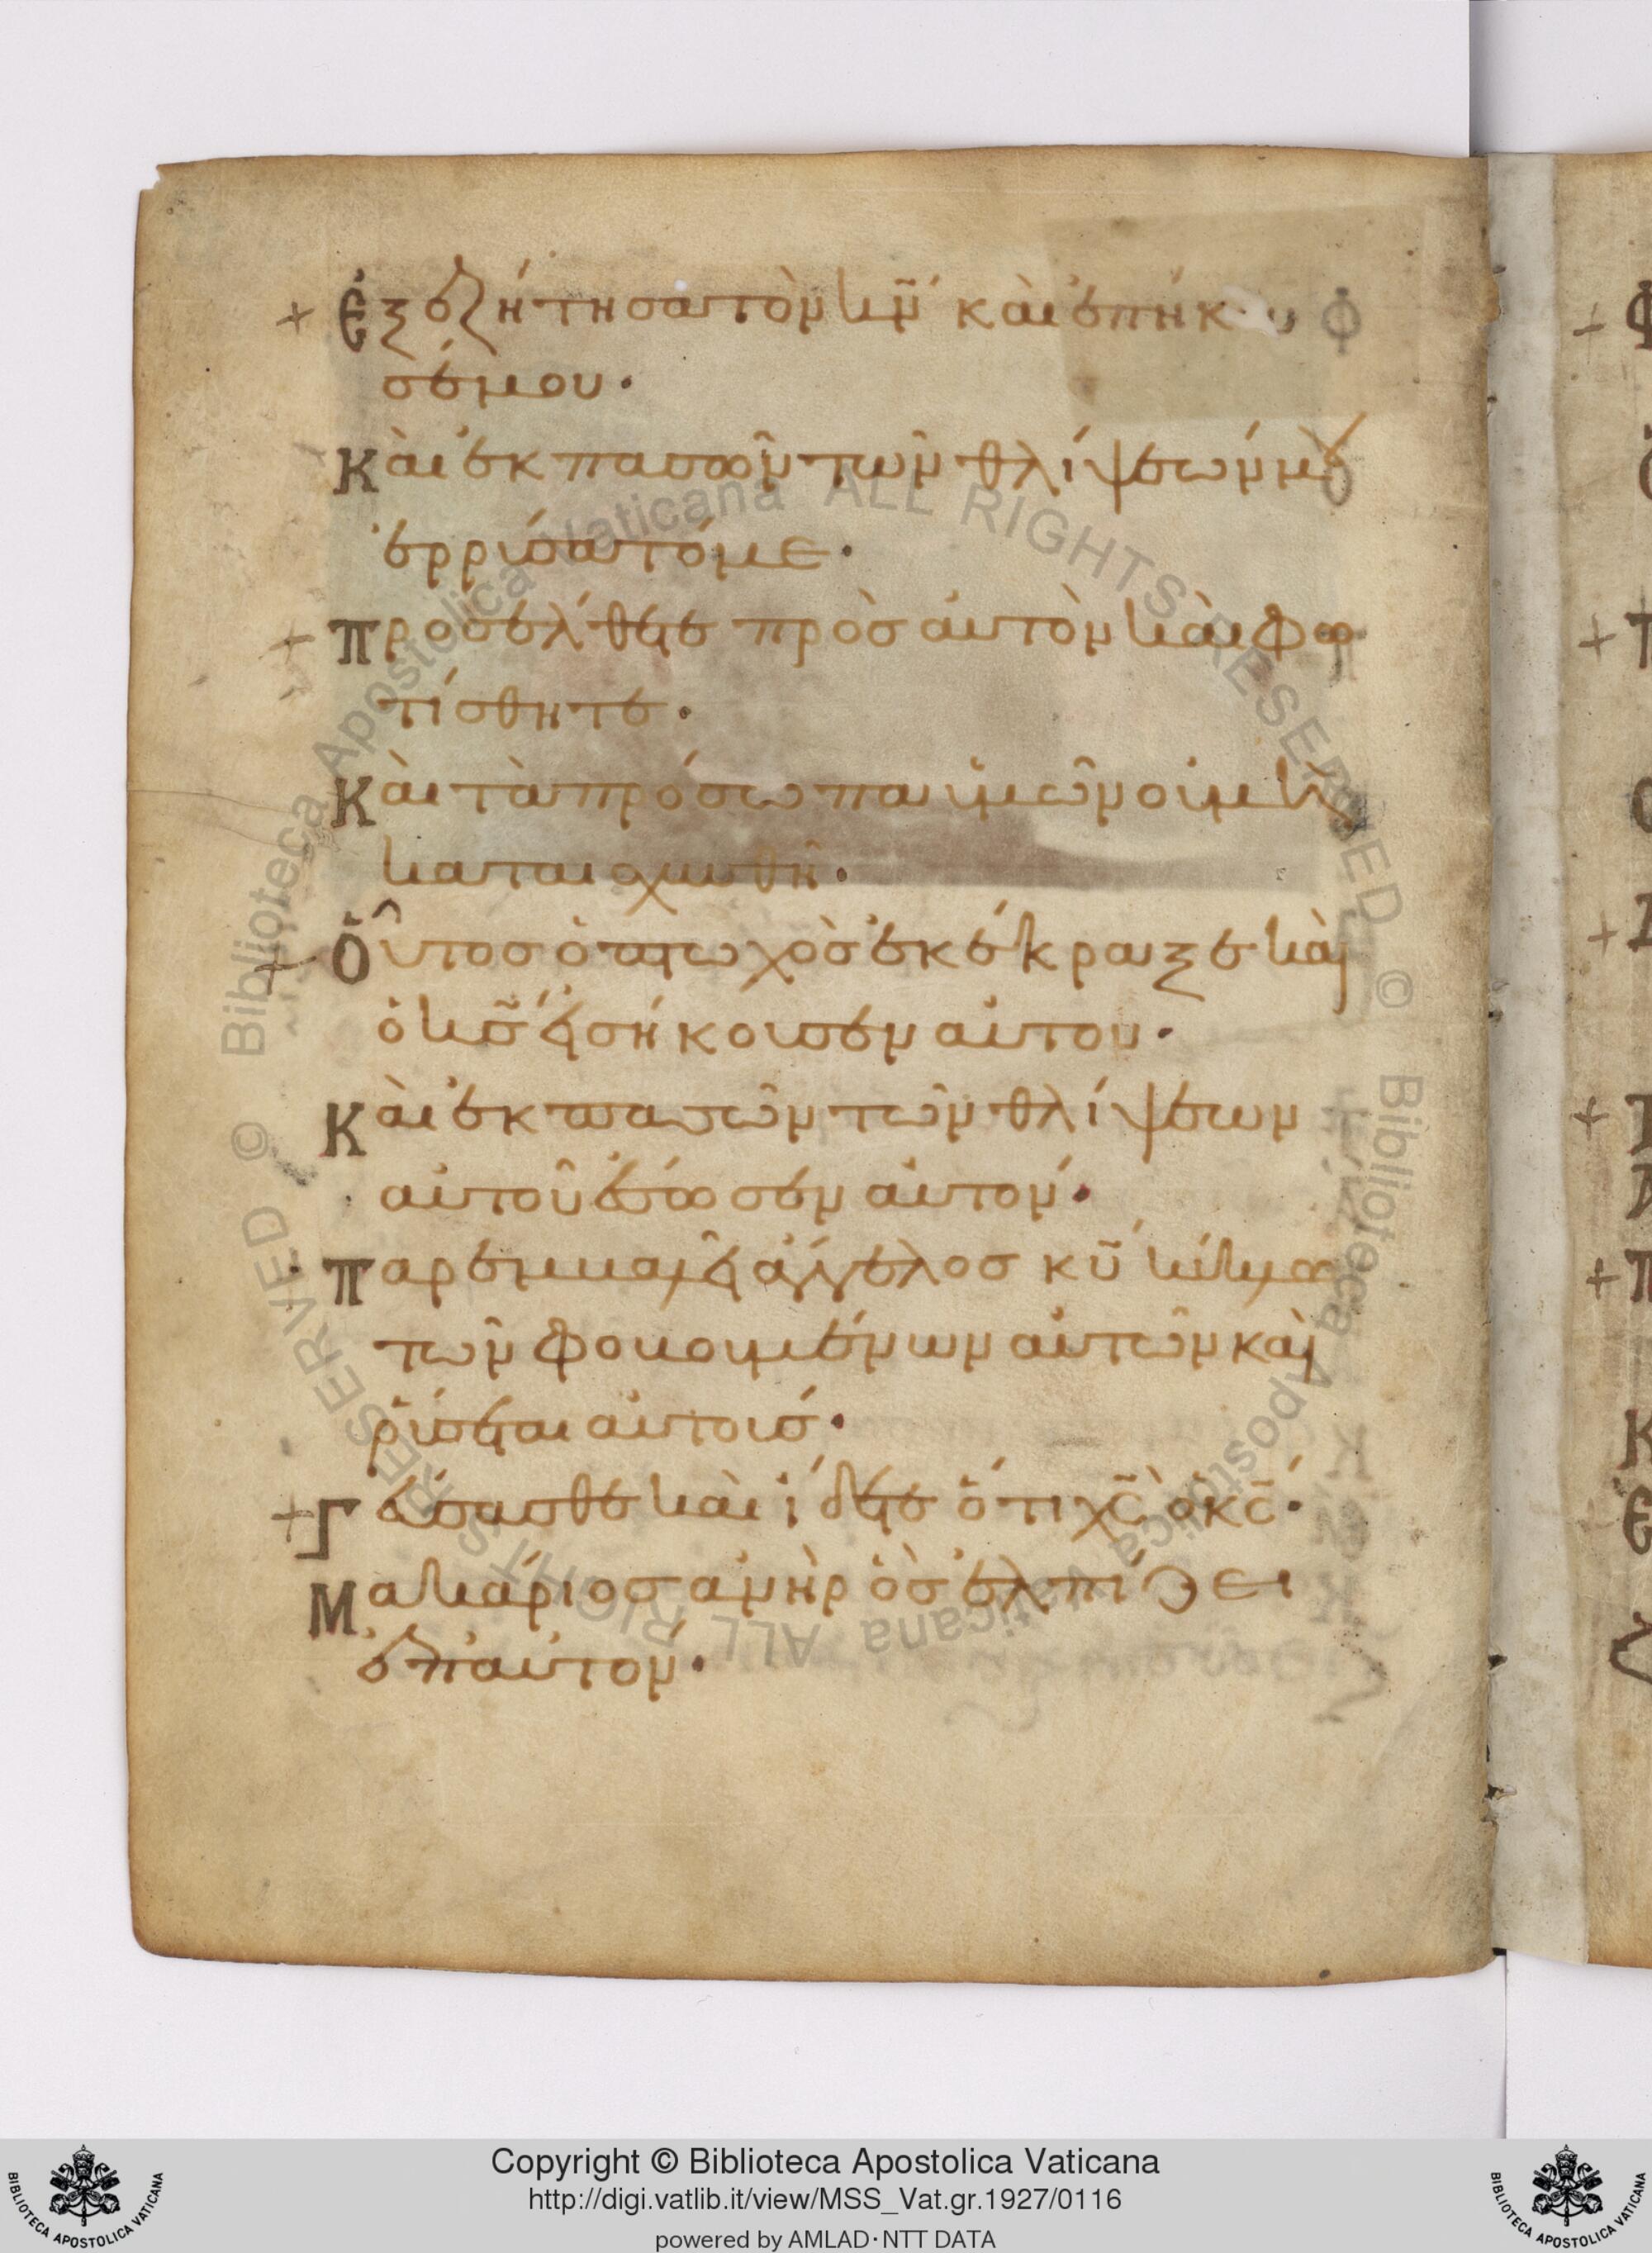 + Ἐξεζήτησα τὸν κν̃ καὶ ἐπήκου
σέ μου·
Καὶ ἐκ πασῶν τῶν θλίψεών μου
ἐρρύσατό με·
+ Προσέλθετε πρὸς αὐτὸν καὶ φω
τίσθητε·
Καὶ τὰ πρόσωπα ὑμῶν οὐ μὴ
καταισχυνθῆ·
+ Οὗτος ὁ πτωχὸς ἐκέκραξε καὶ
ὁ κς̃ εἰσήκουσεν αὐτου·
Καὶ ἐκ πασῶν τῶν θλίψεων
αὐτοῦ ἔσωσεν αὐτον·
Παρεμβαλεῖ ἄγγελος κυ̃ κύκλω
τῶν φοβουμένων αὐτῶν καὶ
ῥύσεται αὐτούς·
+ Γεύσασθε καὶ ἴδετε ὅτι χς̃ ὁ κς̃·
Μακάριος ἀνὴρ ὃς ἐλπίζει
ἐπ αὐτον·
Copyright © Biblioteca Apostolica Vaticana
http://digi.vatlib.it/view/MSS_Vat.gr.1927/0116
powered by AMLAD·NTT DATA
BIBLIOTECA APOSTOLICA VATICANA
BIBLIOTECA APOSTOLICA VATICANA
© Biblioteca Apostolica Vaticana ALL RIGHTS RESERVED
© Biblioteca Apostolica Vaticana ALL RIGHTS RESERVED